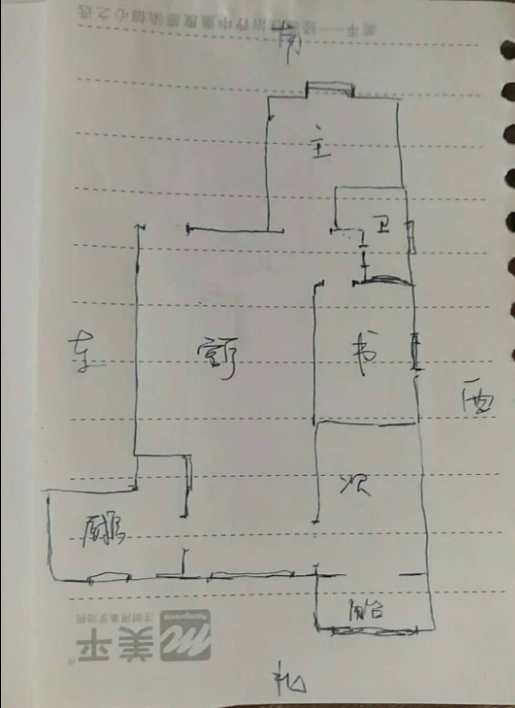 南
主
卫
东
客厅
书
西
次
厨房
阳台
美平
北